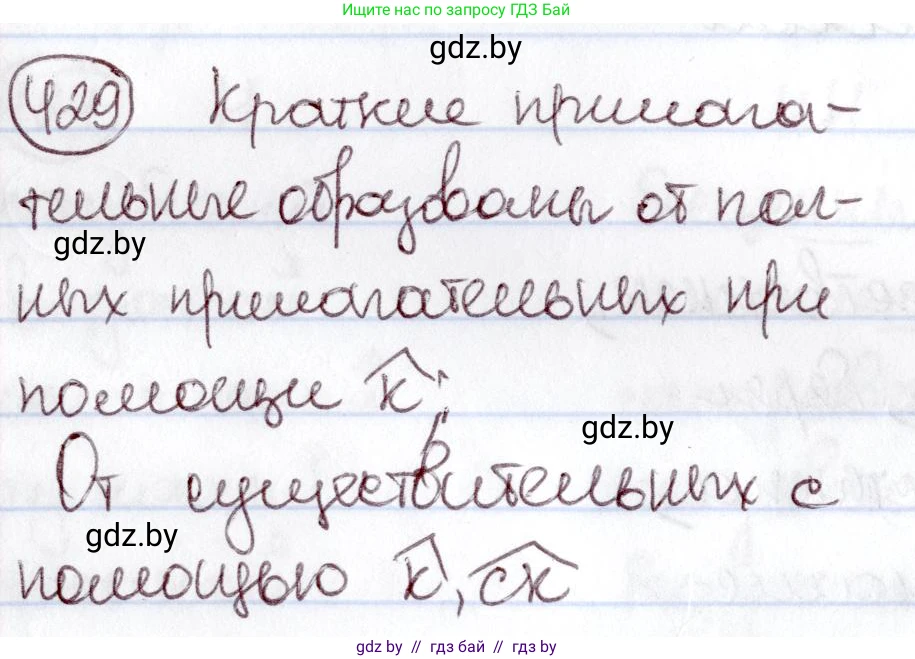 Ищите нас по запросу ГДЗ Бай
gdz.by
429 Краткие прилага-
тельные образованы от пол-
gdz.by
ных прилагательных при
помощи к;
gdz.by
От существительных с
gdz.by
помощью к, ск
gdz.by // гдз бай // гдз by